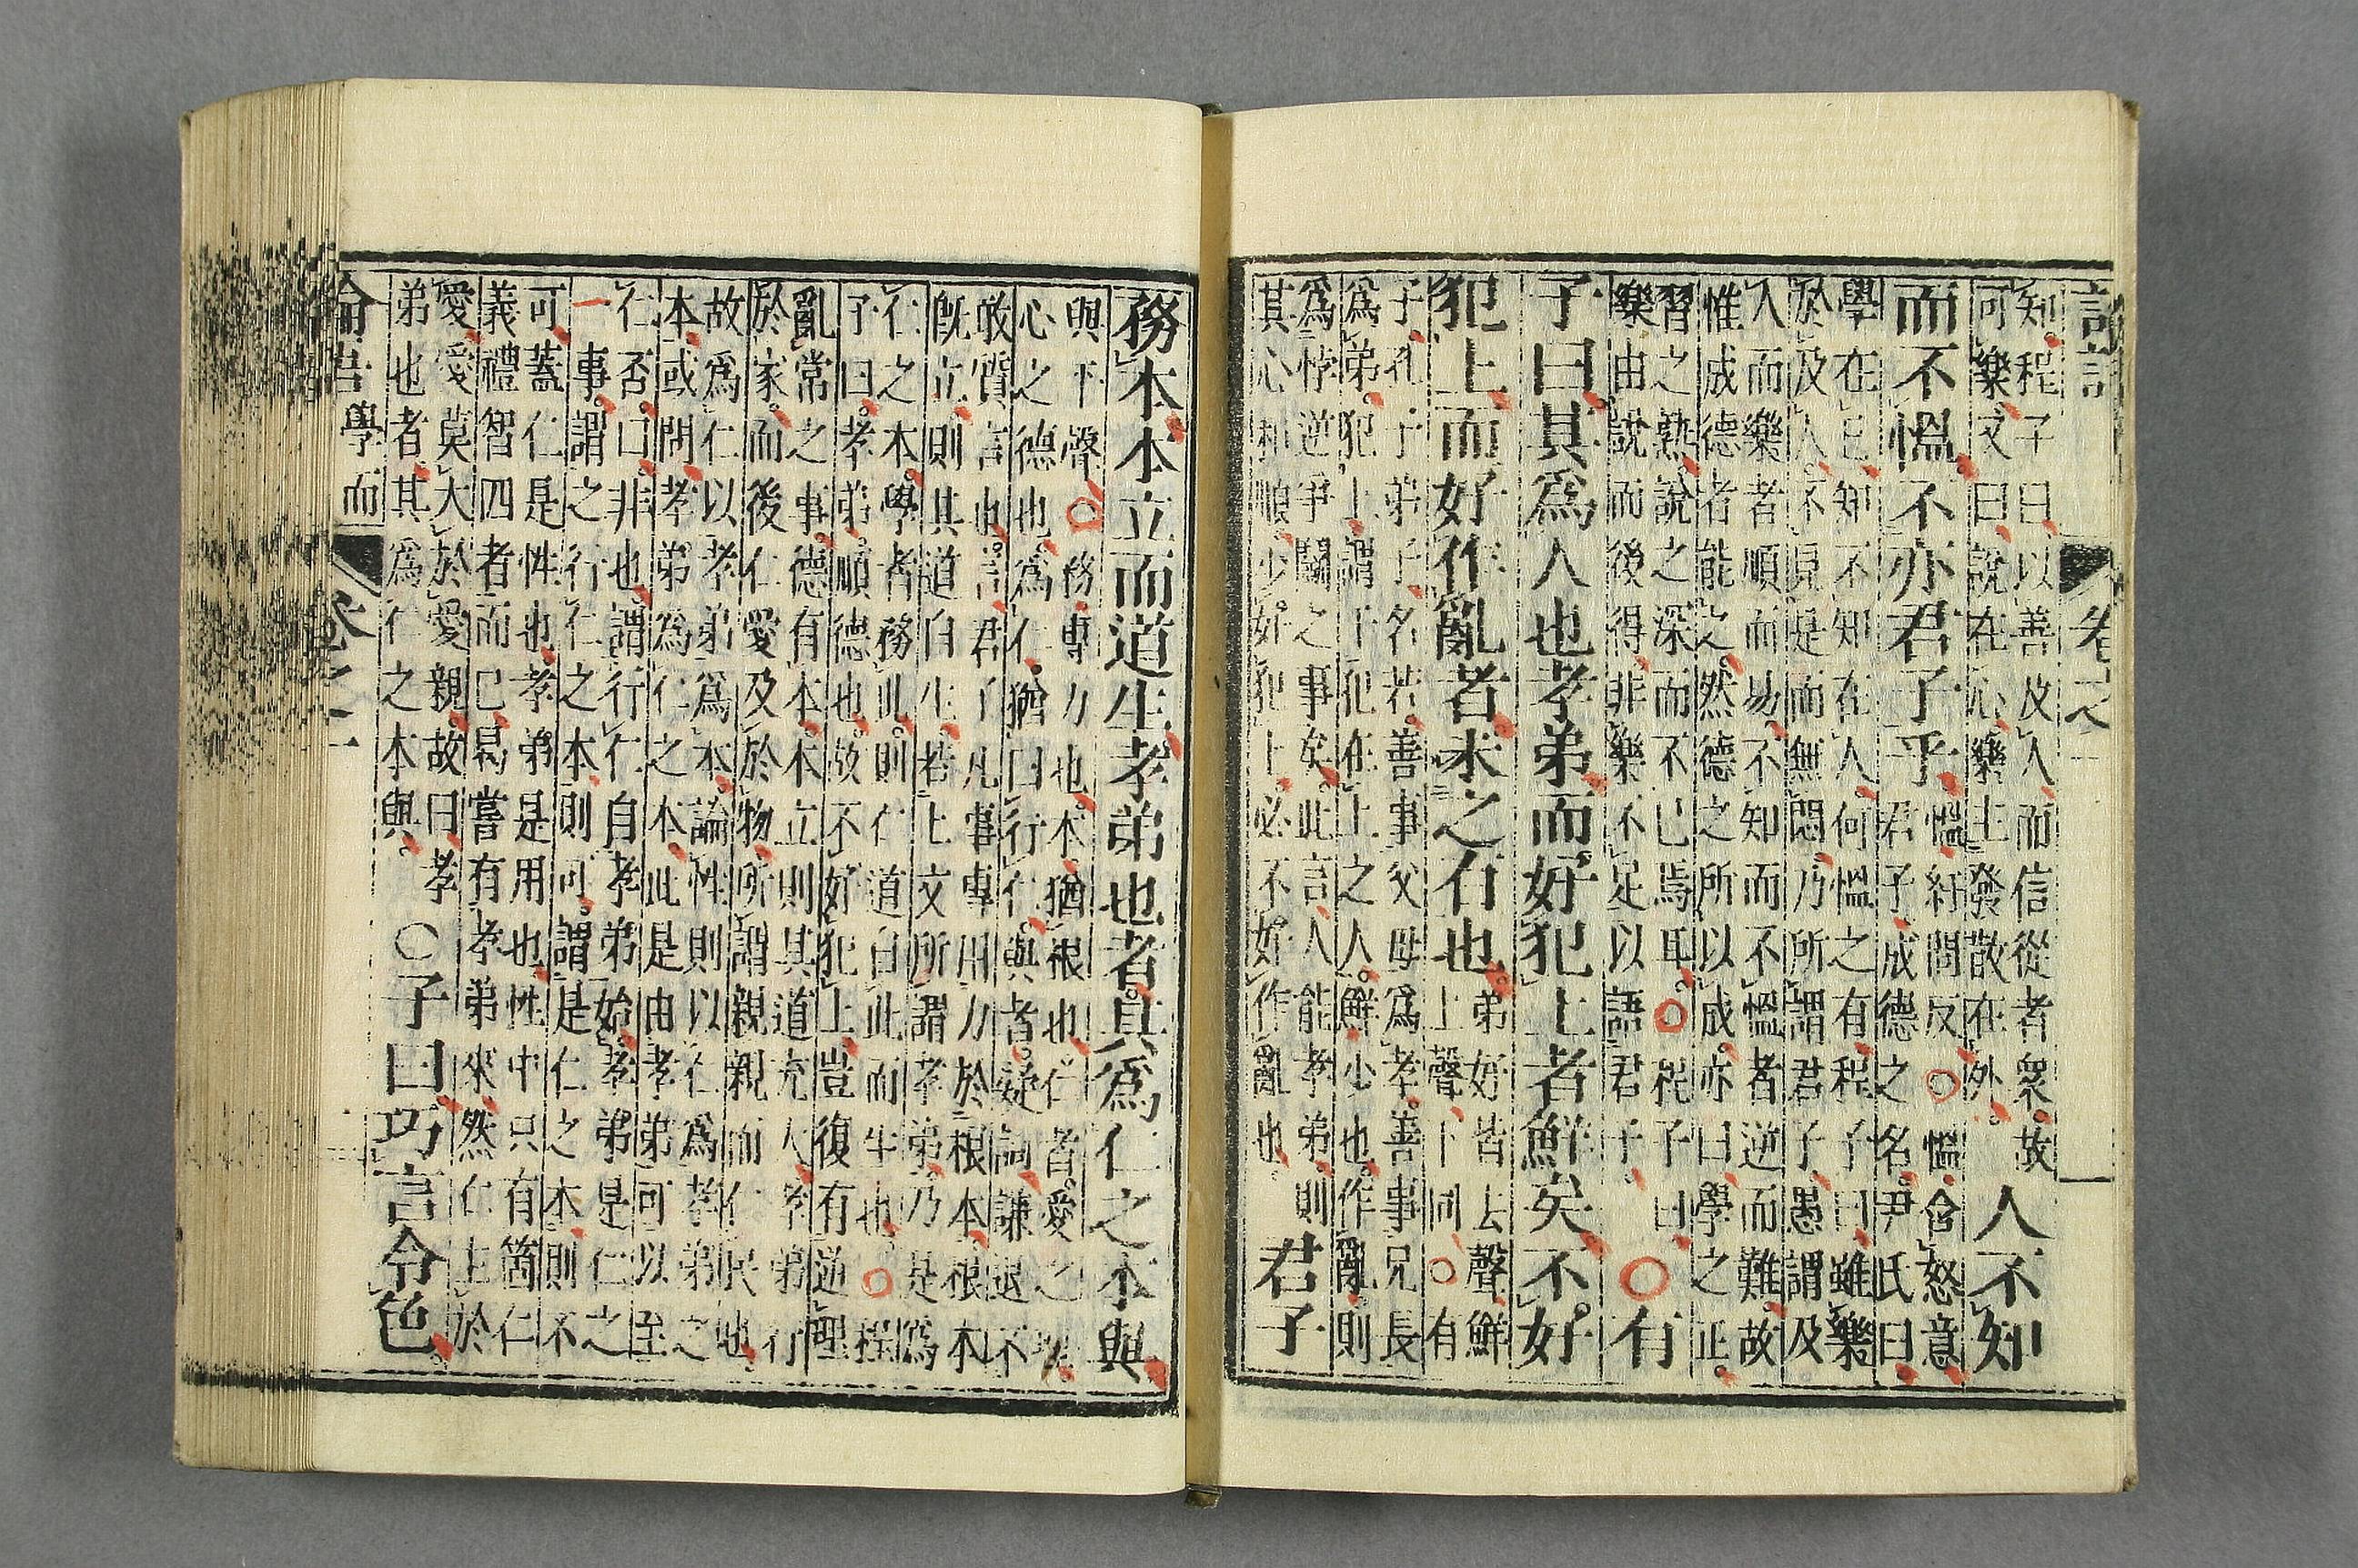 論語 卷之一
知程子曰以善及人而信從者衆故
可樂又曰說在心樂主發散在外
人不知
而不慍不亦君子乎
慍紆問反○慍含怒意
君子成德之名尹氏曰
學在己知不知在人何慍之有程子曰雖樂
於及人不見是而無悶乃所謂君子愚謂及
人而樂者順而易不知而不慍者逆而難故
惟成德者能之然德之所以成亦曰學之正
習之熟說之深而不已焉耳○程子曰
樂由說而後得非樂不足以語君子
○有
子曰其爲人也孝弟而好犯上者鮮矣不好
犯上而好作亂者未之有也
弟好皆去聲鮮
上聲下同○有
子孔子弟子名若善事父母爲孝善事兄長
爲弟犯上謂干犯在上之人鮮少也作亂則
爲悖逆爭鬭之事矣此言人能孝弟則
其心和順少好犯上必不好作亂也
君子
務本本立而道生孝弟也者其爲仁之本與
與平聲○務專力也本猶根也仁者愛之理
心之德也爲仁猶曰行仁與者疑詞謙退不
敢質言也言君子凡事專用力於根本根本
旣立則其道自生若上文所謂孝弟乃是爲
仁之本學者務此則仁道自此而生也○程
子曰孝弟順德也故不好犯上豈復有逆理
亂常之事德有本本立則其道充大孝弟行
於家而後仁愛及於物所謂親親而仁民也
故爲仁以孝弟爲本論性則以仁爲孝弟之
本或問孝弟爲仁之本此是由孝弟可以至
仁否曰非也謂行仁自孝弟始孝弟是仁之
一事謂之行仁之本則可謂是仁之本則不
可蓋仁是性也孝弟是用也性中只有箇仁
義禮智四者而已曷嘗有孝弟來然仁主於
愛愛莫大於愛親故曰孝
弟也者其爲仁之本與
○子曰巧言令色
論語 學而 卷之一